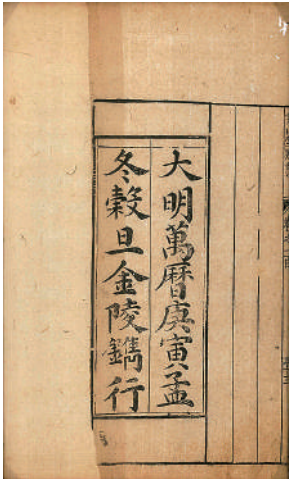 大明萬曆庚寅孟
冬穀旦金陵鐫行